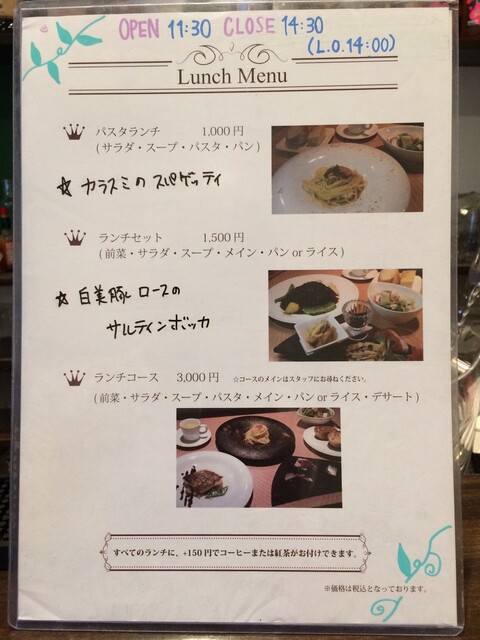 OPEN 11:30 CLOSE 14:30
(L.O.14:00)
Lunch Menu
パスタランチ 1,000円
(サラダ・スープ・パスタ・パン)
☆ カラスミの スパゲッティ
ランチセット 1,500円
(前菜・サラダ・スープ・メイン・パン or ライス)
☆ 白美豚 ロースの
サルティンボッカ
ランチコース 3,000円 ☆コースのメインはスタッフにお尋ねください。
(前菜・サラダ・スープ・パスタ・メイン・パン or ライス・デザート)
すべてのランチに、+150円でコーヒーまたは紅茶がお付けできます。
※価格は税込となっております。